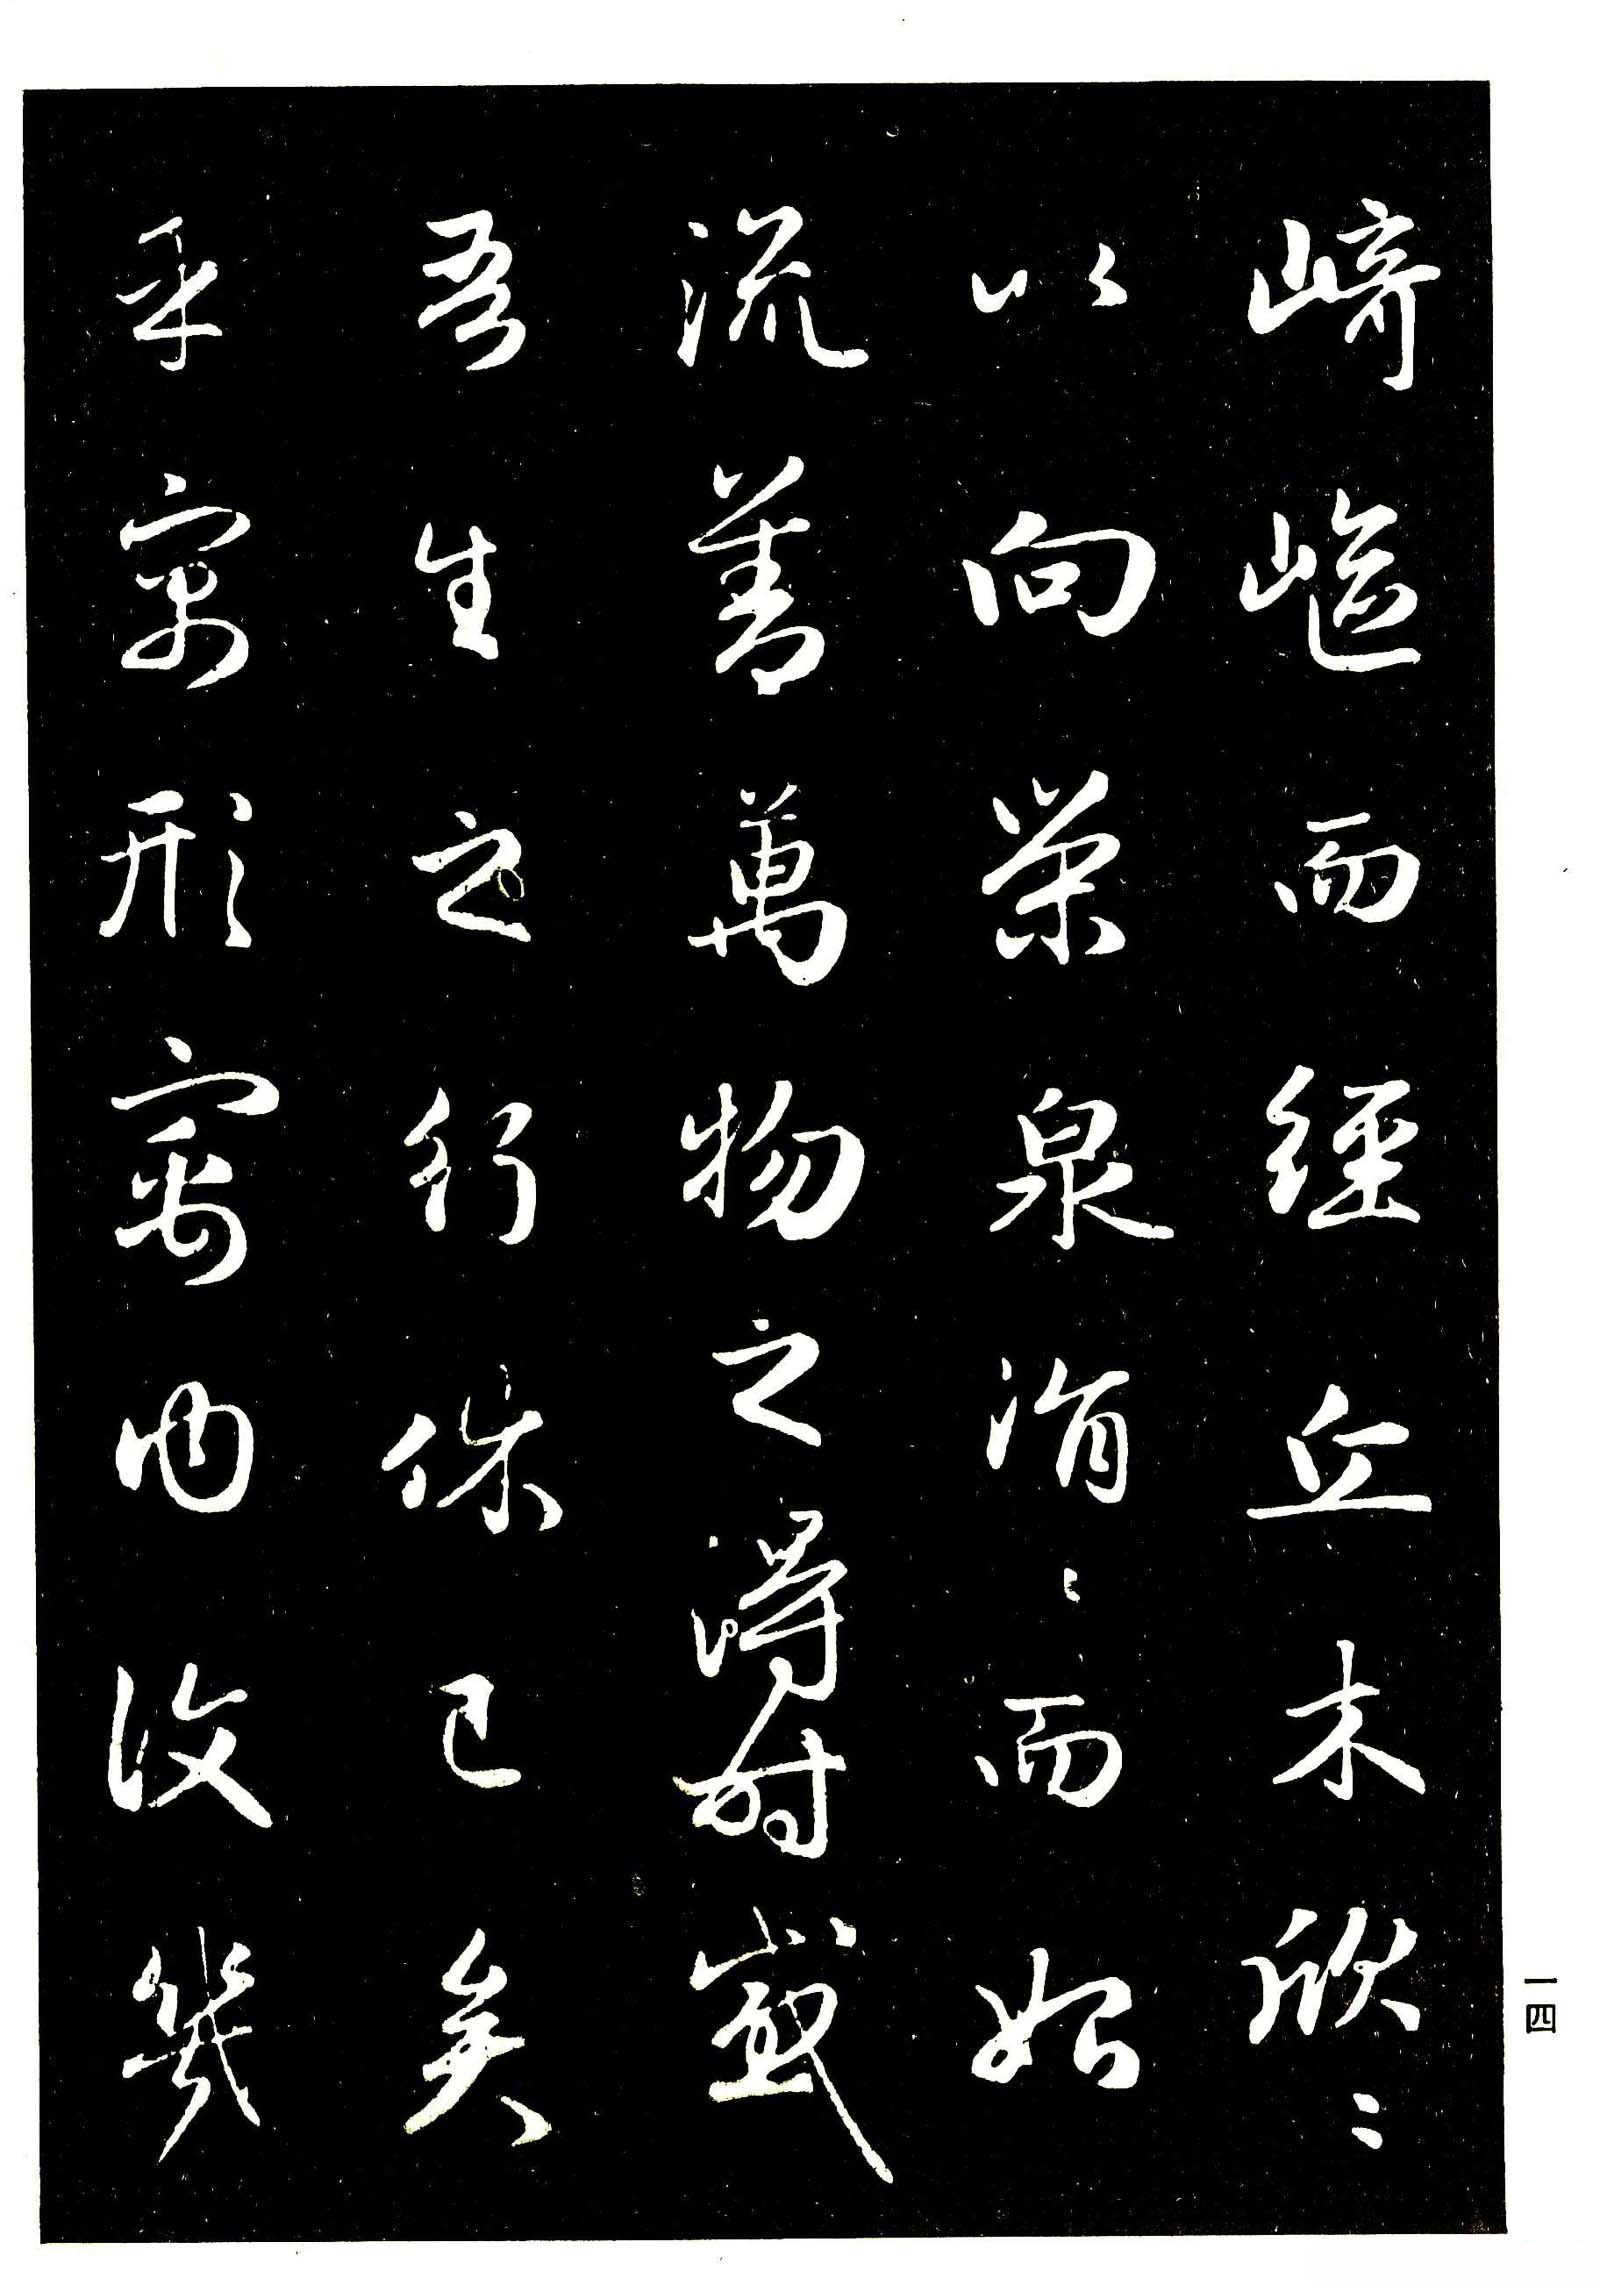 崎嶇而經丘木欣〻
以向榮泉涓〻而始
流善萬物之得時感
吾生之行休已矣
乎寓形寓内復幾
一四